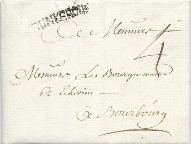 DUNKERQUE
A Messieurs
Messieurs Les Bourguemaitre
et Echevins
4
a Bourbourg